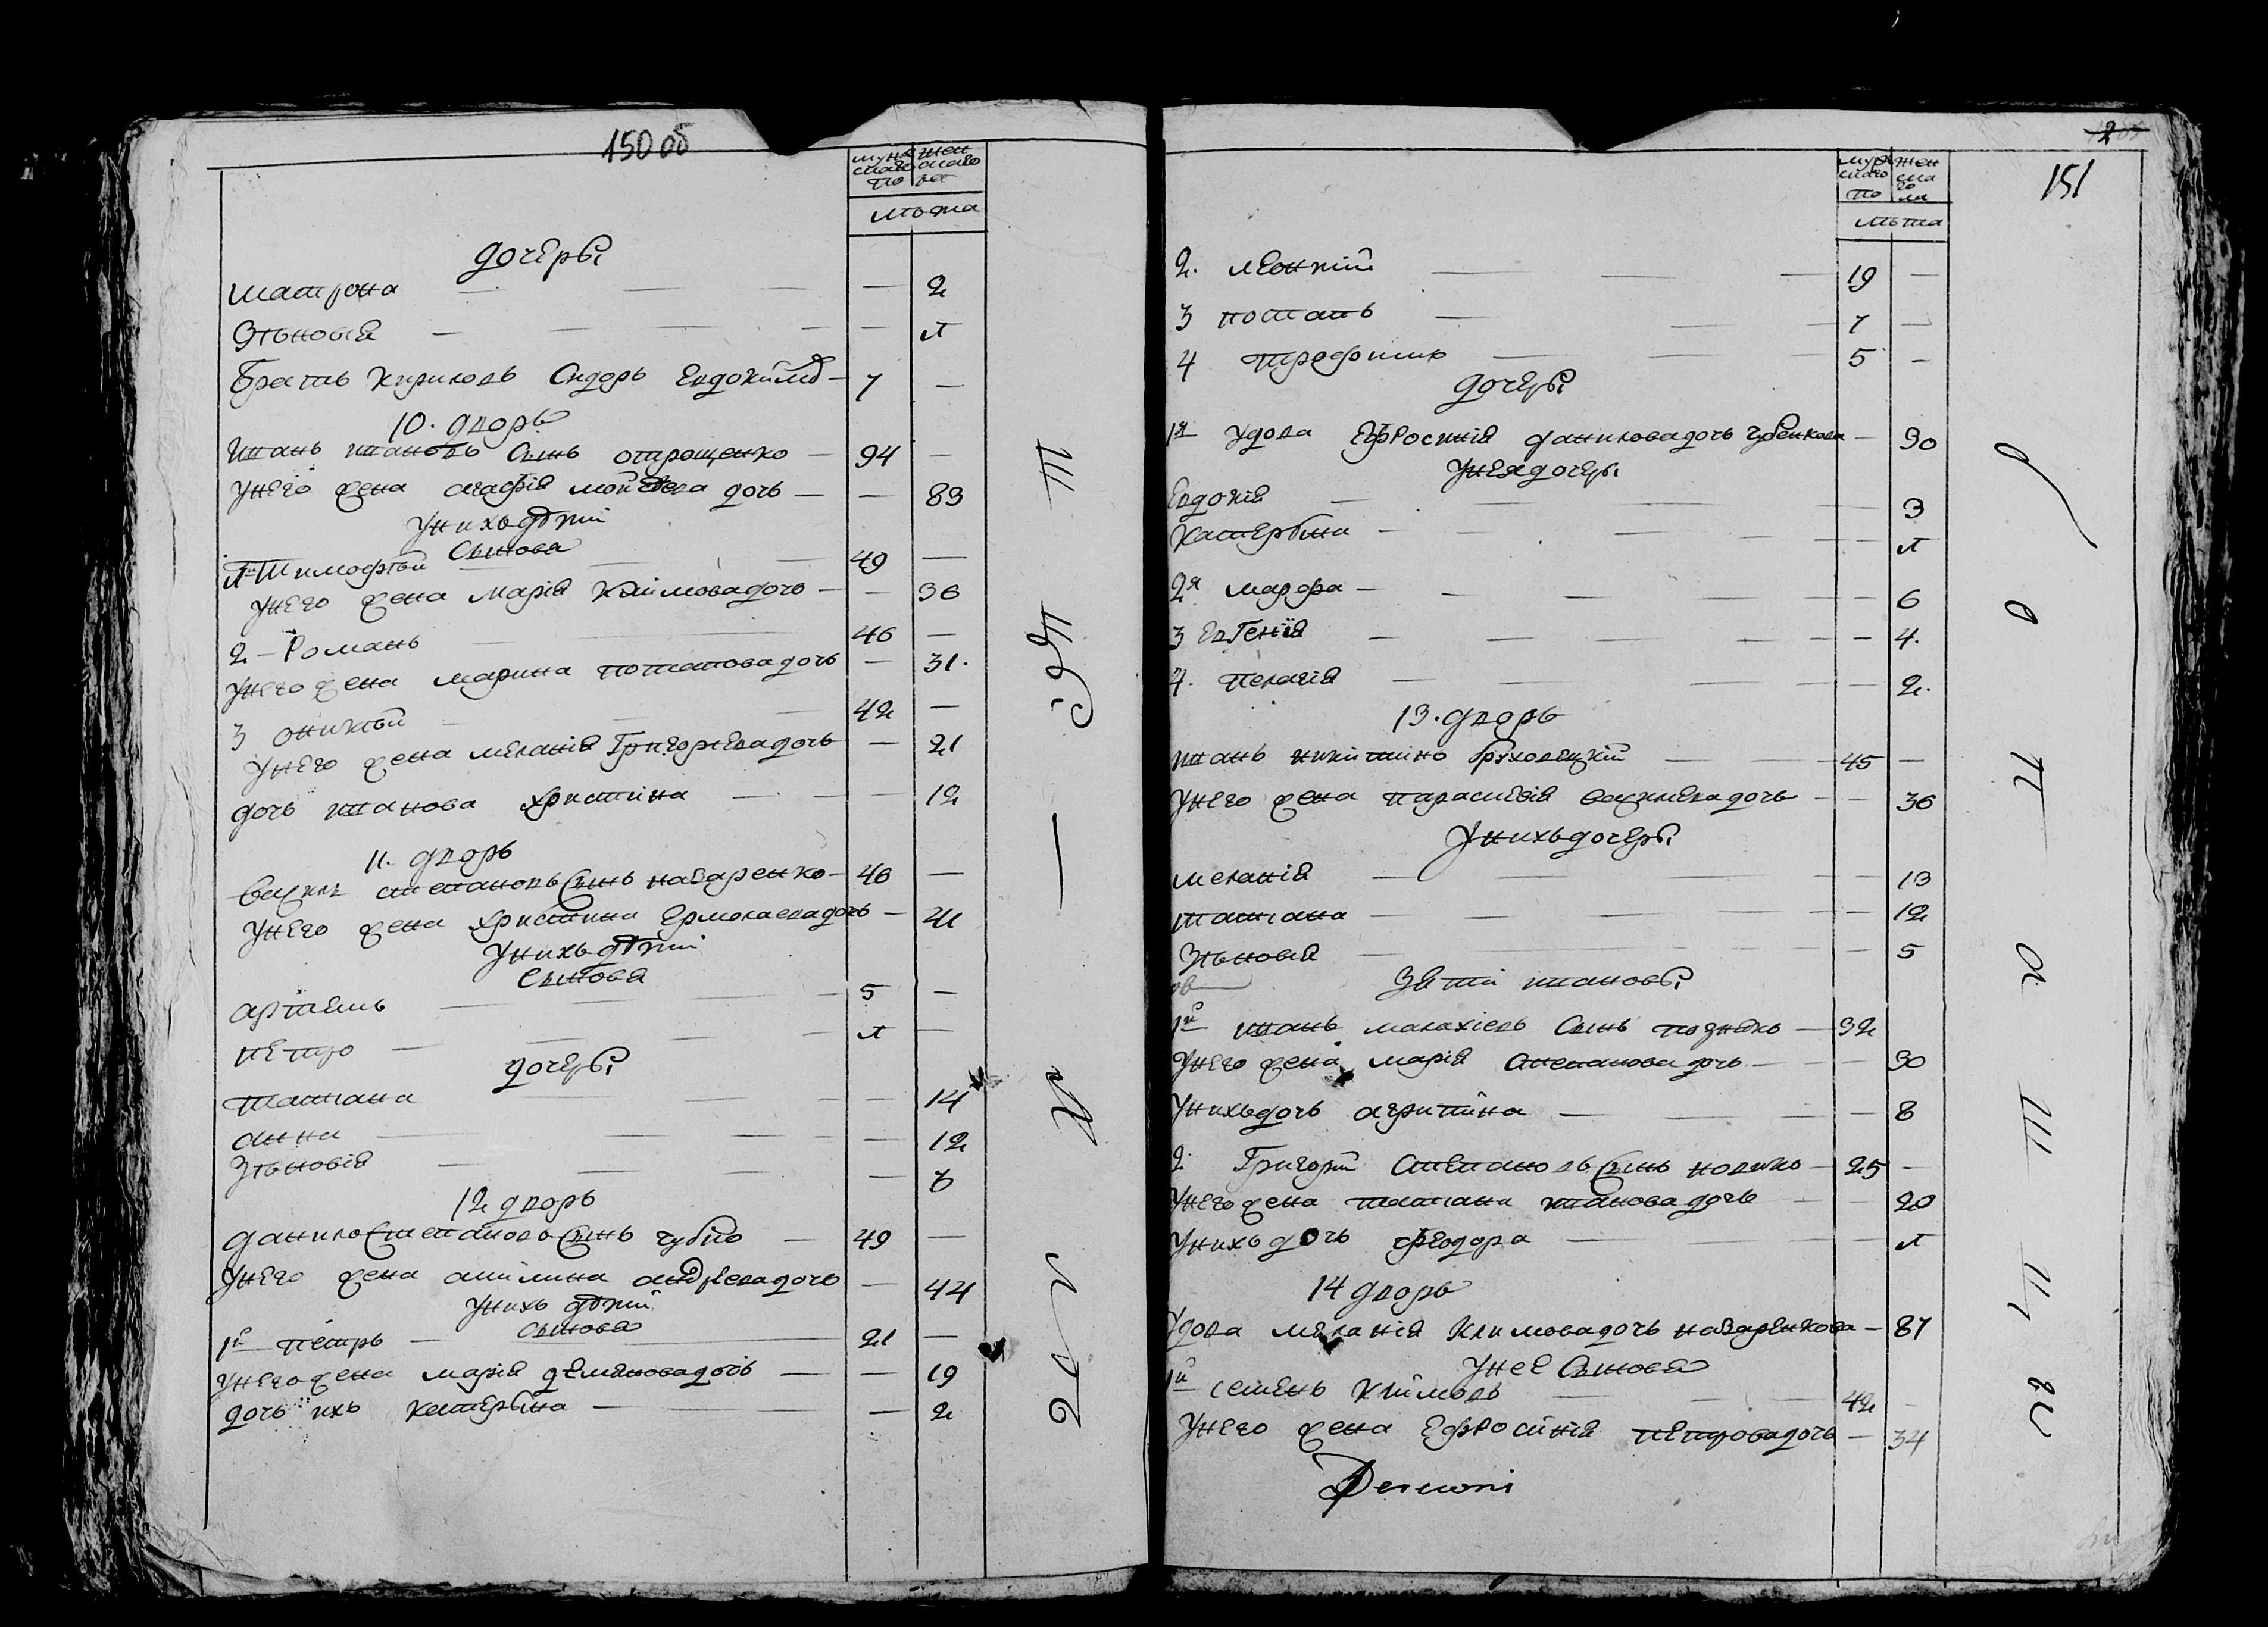 150 об
мужескаго по женскаго ла
лѣта
дочерѣ
Матрона — — — — 2
Зѣновія — — — — 1
Братъ Кириловъ Сидоръ Евдокимов — 7 —
10. дворъ
Иванъ Ивановъ сынъ — 94 —
Унего жена Агафія дочь — — 83
Унихъ дѣти
Сынова
1й Тимофѣй — 49 —
Унего жена Марія Климова дочь — — 36
2 — Романъ — 46 —
Унего жена Марина Потапова дочь — 31.
3 Оникѣй — 42 —
Унего жена Меланія Григориева дочь — 21
дочь Иванова Христина — — — 12
11. дворъ
Василь Степановъ Сынъ Назаренко — 46 —
Унего жена Христина Ермолаева дочь — 41
Унихъ дѣти
Сынова
Артемъ — 5 —
Петро — — 1 —
дочерѣ
Татіана — — — 14
Анна — — — 12
Зѣновія — — — 8
12 дворъ
Данило Степановъ Сынъ Чубъко — 49 —
Унего жена Акилина Андріева дочь — 44
Унихъ дѣти
Сынова
1й Петръ — 21 —
Унего жена Марія Демянова дочь — — 19
дочь ихъ Катерына — — 2
151
мужескаго по женскаго ла
лѣта
2. Леонтій — — 19 —
3 Потапъ — — 7 —
4 Трофимъ — — 5 —
дочерѣ
1я Удова Ефросинія Данилова дочь Чубенкова — 30
Унея дочерѣ
Евдокія — — — 3
Катерына — — — 1
2я Марфа — — — 6
3 Евгенія — — — 4.
4. Пелагія — — — 2.
13. дворъ
Иванъ Никитинъ Бруховецкій — 45 —
Унего жена Параскевія Василева дочь — — 36
Унихъ дочерѣ
Меланія — — — 13
Татіана — — — 12
Зѣновія — — 5
Зяти Ивановы
1й Иванъ Малахіевъ Сынъ — 32
Унего жена Марія Степанова дочь — — 30
Унихъ дочь Агрипина — — — 8
2 Григорій Степановъ Сынъ — 25 —
Унего жена Татіана Иванова дочь — — 20
Унихъ дочь Феодора — — 1
14 дворъ
Удова Меланія Климова дочь Назаренкова — 87
Унее Сынова
1й Семенъ Климовъ — — 42 —
Унего жена Ефросинія Петрова дочь — 34